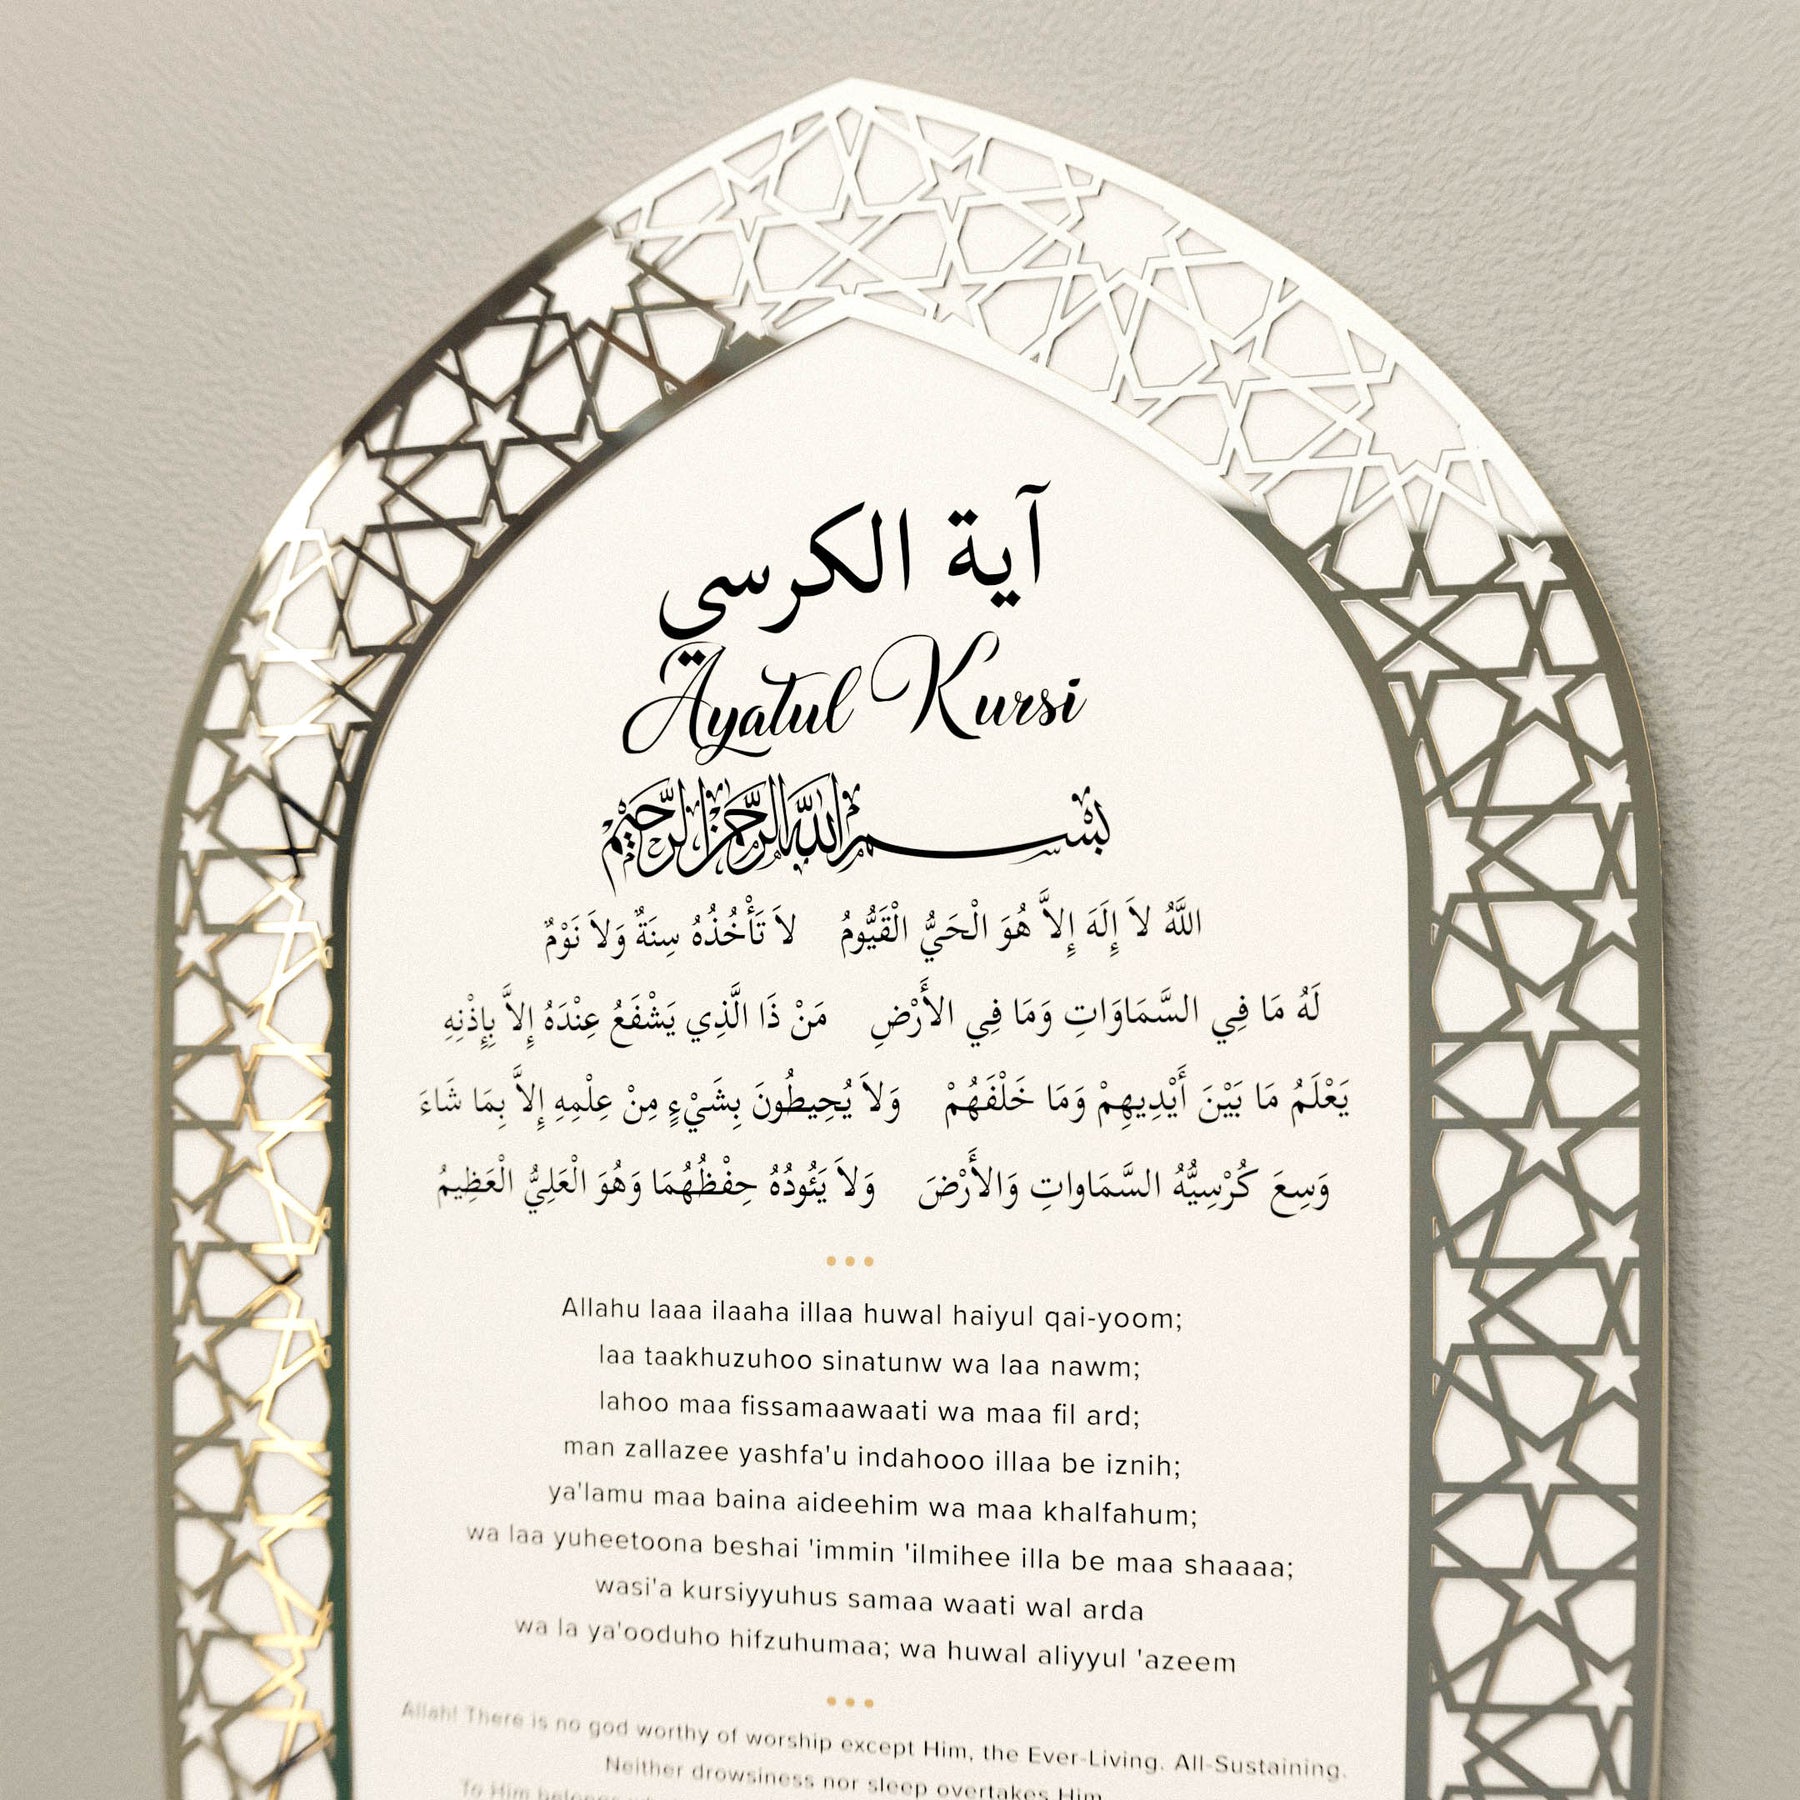 آية الكرسي
Ayatul Kursi
بِسْمِ اللَّهِ الرَّحْمَنِ الرَّحِيمِ
اللَّهُ لاَ إِلَهَ إِلاَّ هُوَ الْحَيُّ الْقَيُّومُ لاَ تَأْخُذُهُ سِنَةٌ وَلاَ نَوْمٌ
لَهُ مَا فِي السَّمَاوَاتِ وَمَا فِي الأَرْضِ مَنْ ذَا الَّذِي يَشْفَعُ عِنْدَهُ إِلاَّ بِإِذْنِهِ
يَعْلَمُ مَا بَيْنَ أَيْدِيهِمْ وَمَا خَلْفَهُمْ وَلاَ يُحِيطُونَ بِشَيْءٍ مِنْ عِلْمِهِ إِلاَّ بِمَا شَاءَ
وَسِعَ كُرْسِيُّهُ السَّمَاواتِ وَالأَرْضَ وَلاَ يَئُودُهُ حِفْظُهُمَا وَهُوَ الْعَلِيُّ الْعَظِيمُ
Allahu laaa ilaaha illaa huwal haiyul qai-yoom;
laa taakhuzuhoo sinatunw wa laa nawm;
lahoo maa fissamaawaati wa maa fil ard;
man zallazee yashfa'u indahooo illaa be iznih;
ya'lamu maa baina aideehim wa maa khalfahum;
wa laa yuheetoona beshai 'immin 'ilmihee illa be maa shaaaa;
wasi'a kursiyyuhus samaa waati wal arda
wa la ya'ooduho hifzuhumaa; wa huwal aliyyul 'azeem
Allah! There is no god worthy of worship except Him, the Ever-Living. All-Sustaining.
Neither drowsiness nor sleep overtakes Him.
To Him belongs